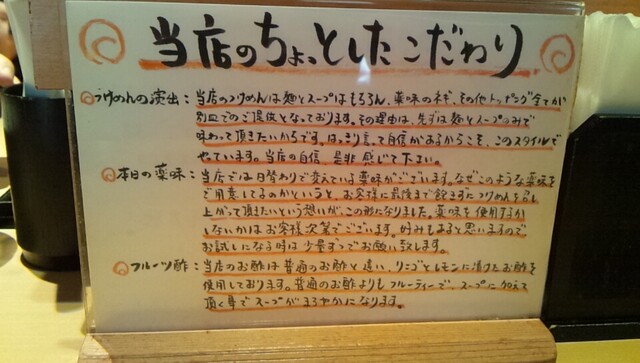 当店のちょっとしたこだわり
つけめんの演出：当店のつけめんは麺とスープはもちろん、薬味のネギ、その他トッピング全てが
別皿でのご提供となっております。その理由は、先ずは麺とスープのみで
味わって頂きたいからです。はっきり言って自信があるからこそ、このスタイルで
やっています。当店の自信、是非感じて下さい。
本日の薬味：当店では日替わりで変えている薬味がございます。なぜこのような薬味を
ご用意してるのかというと、お客様に最後まで飽きずにつけめんを召し
上がって頂きたいという想いが、この形になりました。薬味を使用するか
しないかはお客様次第でございます。好みもあると思いますので
お試しになる時は少量ずつでお願い致します。
フルーツ酢：当店のお酢は普通のお酢と違い、りんごとレモンに漬けたお酢を
使用しております。普通のお酢よりもフルーティーで、スープに加えて
頂く事でスープがまろやかになります。